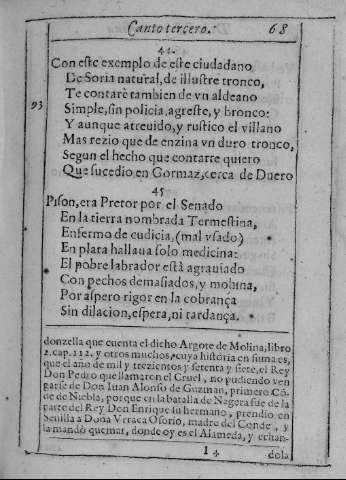 Canto terçero. 68
44.
Con este exemplo de este ciudadano
De Soria natural, de illustre tronco,
Te contarè tambien de vn aldeano
93
Simple, sin policia, agreste, y bronco:
Y aunque atreuido, y rustico el villano
Mas rezio que de enzina vn duro tronco,
Segun el hecho que contarte quiero
Que sucedio en Gormaz, cerca de Duero
45
Pison, era Pretor por el Senado
En la tierra nombrada Termestina,
Enfermo de cudicia, (mal vsado)
En plata hallaua solo medicina:
El pobre labrador està agrauiado
Con pechos demasiados, y mohina,
Por aspero rigor en la cobrança
Sin dilacion, espera, ni tardança.
donzella que cuenta el dicho Argote de Molina, libro
2. cap. 112. y otros muchos, cuya historia en suma es,
que el año de mil y trezientos y setenta y siete, el Rey
Don Pedro que llamaron el Cruel, no pudiendo ven
garse de Don Iuan Alonso de Guzman, primero Cõ
de de Niebla, porque en la batalla de Nagera fue de la
parte del Rey Don Enrique su hermano, prendio en
Seuilla a Doña Vrraca Osorio, madre del Conde, y
la mandò quemar, donde oy es el Alameda, y echan-
I 4
dola